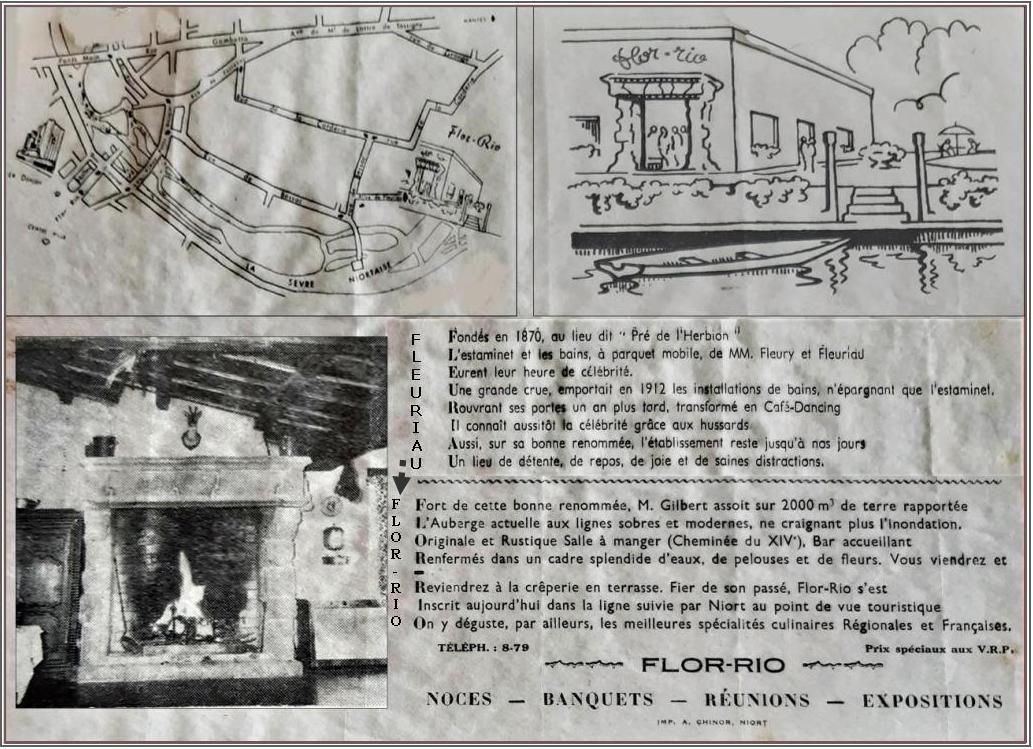 NANTES
Ave du Mal de Lattre de Tassigny
Rue Gambetta
Flor-Rio
Le Donjon
LA SÈVRE NIORTAISE
flor-rio
FLEURIAU
Fondés en 1870, au lieu dit " Pré de l'Herbion "
L'estaminet et les bains, à parquet mobile, de MM. Fleury et Fleuriau
Eurent leur heure de célébrité.
Une grande crue, emportait en 1912 les installations de bains, n'épargnant que l'estaminet.
Rouvrant ses portes un an plus tard, transformé en Café-Dancing
Il connaît aussitôt la célébrité grâce aux hussards
Aussi, sur sa bonne renommée, l'établissement reste jusqu'à nos jours
Un lieu de détente, de repos, de joie et de saines distractions.
FLOR-RIO
Fort de cette bonne renommée, M. Gilbert assoit sur 2000 m³ de terre rapportée
L'Auberge actuelle aux lignes sobres et modernes, ne craignant plus l'inondation.
Originale et Rustique Salle à manger (Cheminée du XIVe), Bar accueillant
Renfermés dans un cadre splendide d'eaux, de pelouses et de fleurs. Vous viendrez et
Reviendrez à la crêperie en terrasse. Fier de son passé, Flor-Rio s'est
Inscrit aujourd'hui dans la ligne suivie par Niort au point de vue touristique
On y déguste, par ailleurs, les meilleures spécialités culinaires Régionales et Françaises.
TÉLÉPH. : 8-79 Prix spéciaux aux V.R.P.
FLOR-RIO
NOCES — BANQUETS — RÉUNIONS — EXPOSITIONS
IMP. A. CHINOR, NIORT